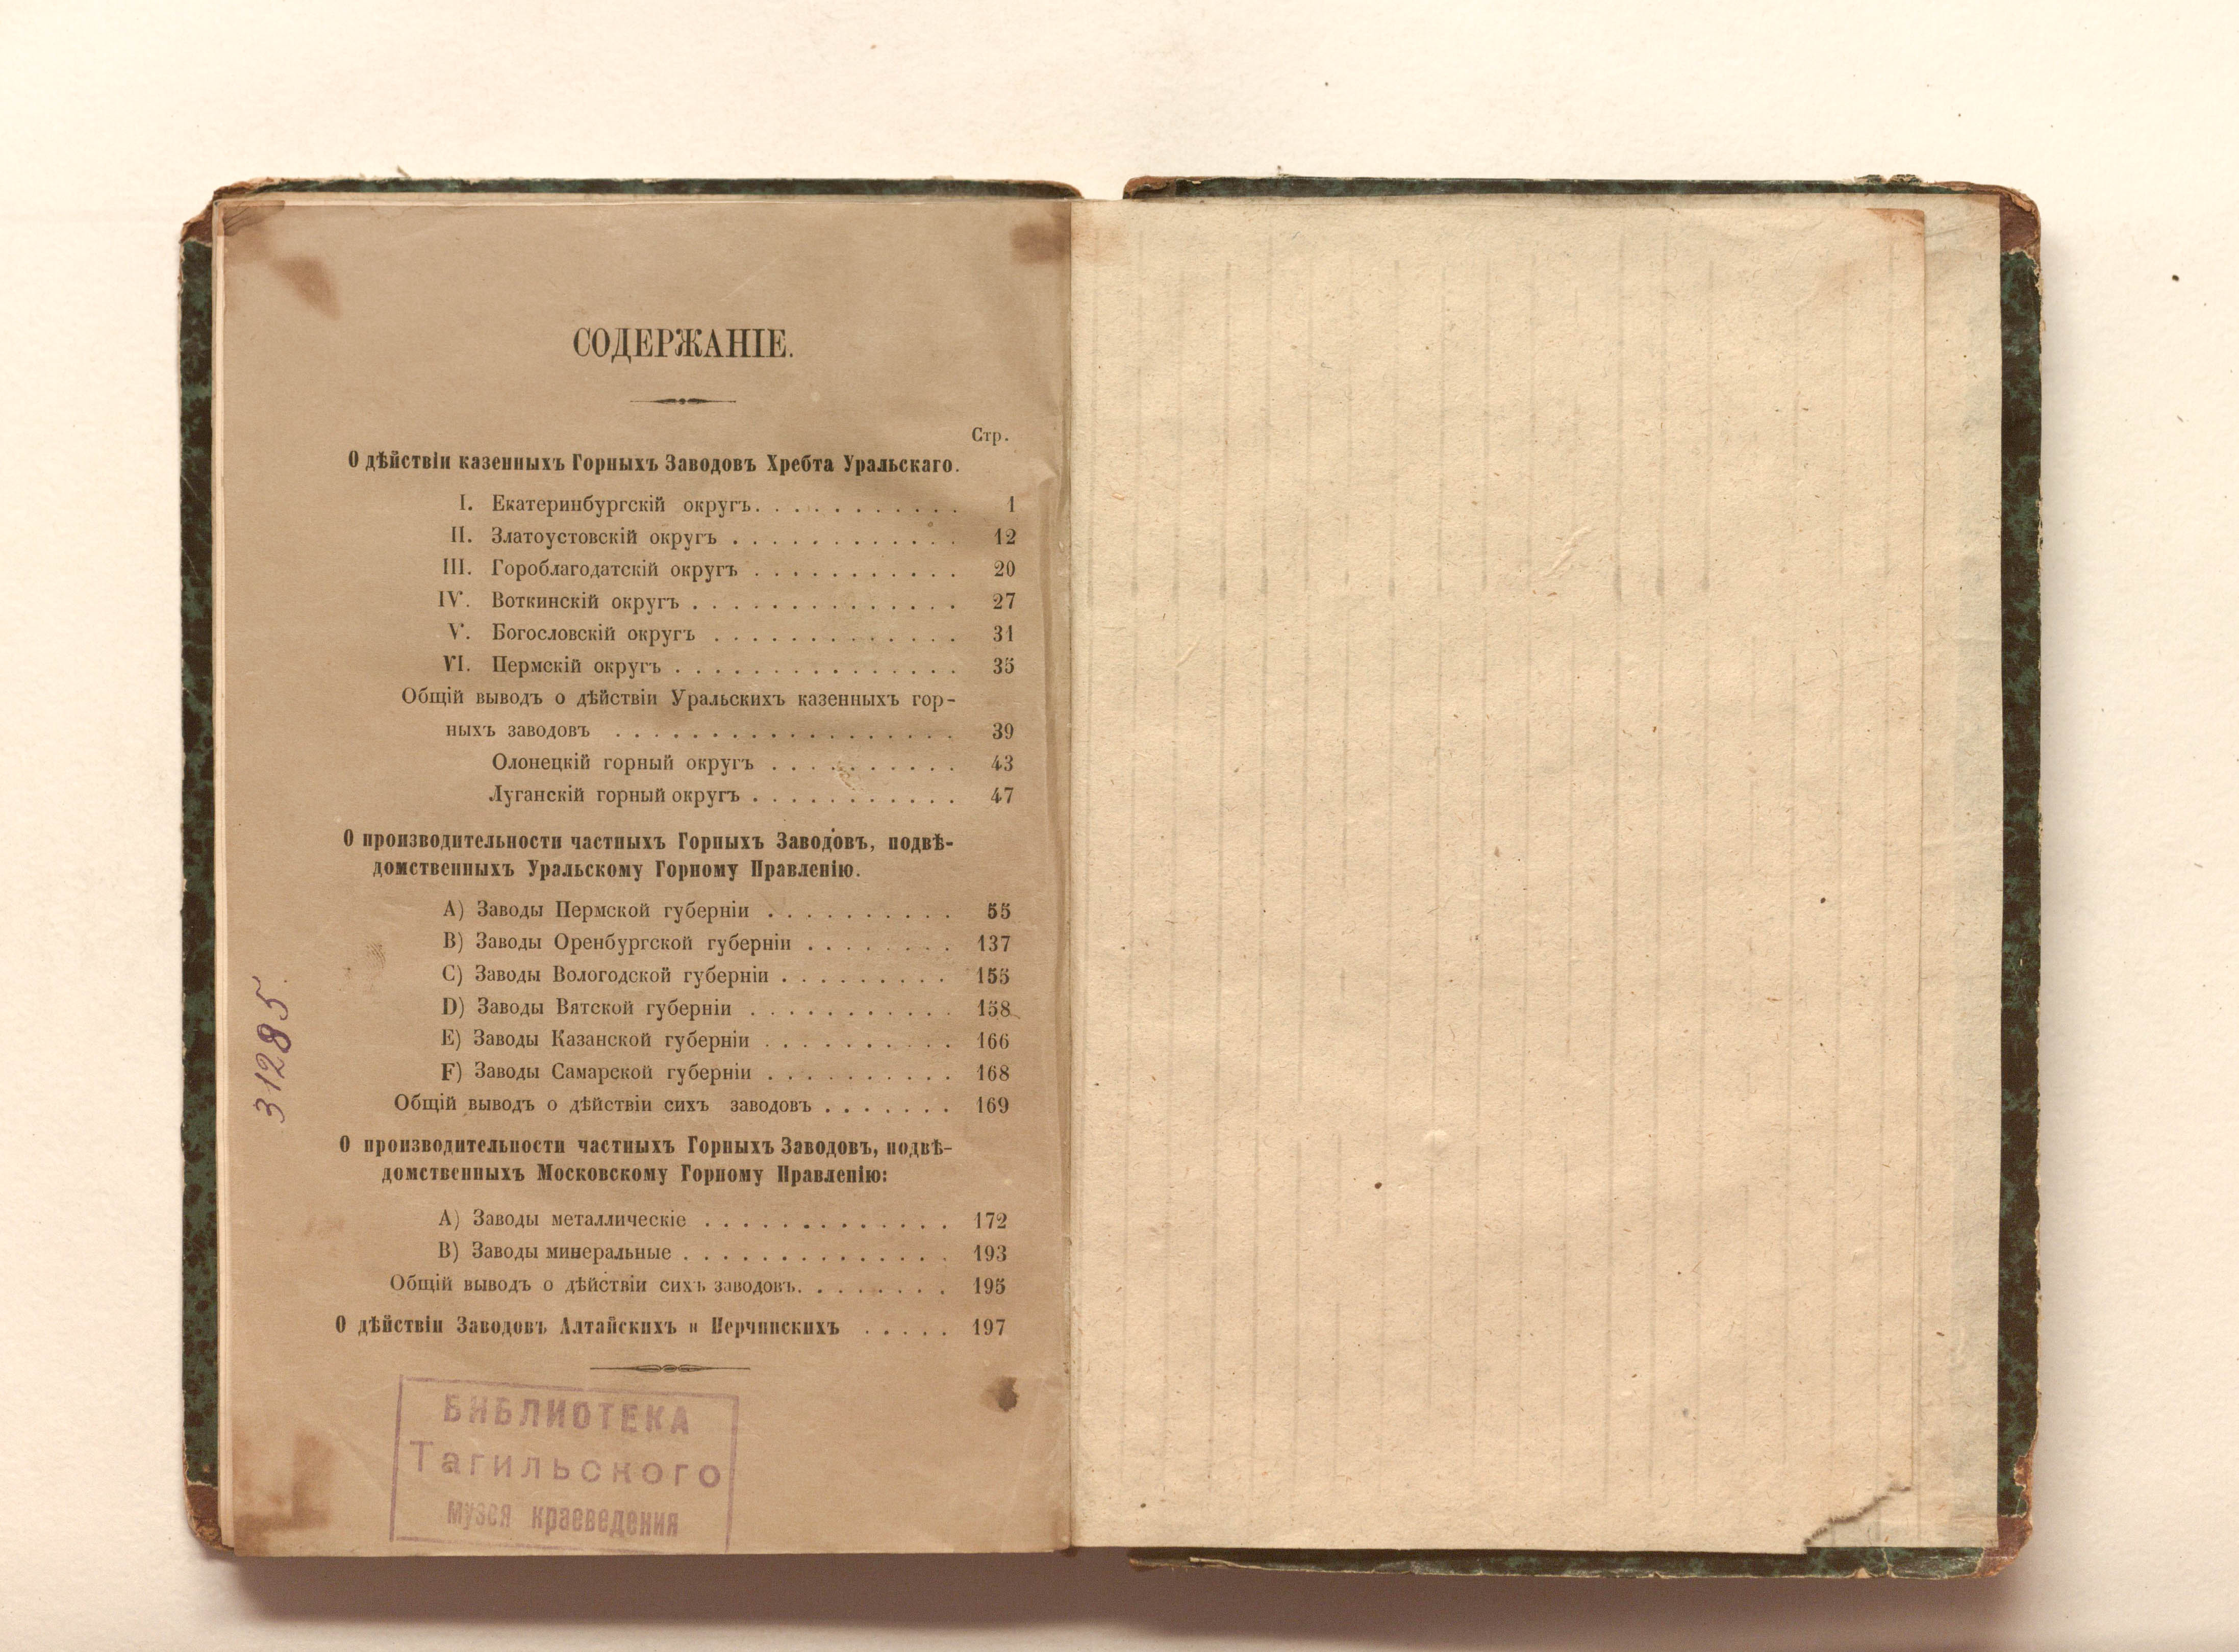 СОДЕРЖАНІЕ.
Стр.
О дѣйствіи казенныхъ Горныхъ Заводовъ Хребта Уральскаго.
I. Екатеринбургскій округъ. . . . . . . . . . . 1
II. Златоустовскій округъ . . . . . . . . . . . . 12
III. Гороблагодатскій округъ . . . . . . . . . . . 20
IV. Воткинскій округъ . . . . . . . . . . . . . . 27
V. Богословскій округъ . . . . . . . . . . . . . 31
VI. Пермскій округъ . . . . . . . . . . . . . . . 35
Общій выводъ о дѣйствіи Уральскихъ казенныхъ гор-
ныхъ заводовъ . . . . . . . . . . . . . . . . . . 39
Олонецкій горный округъ . . . . . . . . . . 43
Луганскій горный округъ . . . . . . . . . . . 47
О производительности частныхъ Горныхъ Заводовъ, подвѣ-
домственныхъ Уральскому Горному Правленію.
A) Заводы Пермской губерніи . . . . . . . . . . 55
B) Заводы Оренбургской губерніи . . . . . . . . 137
C) Заводы Вологодской губерніи . . . . . . . . . 155
D) Заводы Вятской губерніи . . . . . . . . . . . 158
E) Заводы Казанской губерніи . . . . . . . . . . 166
F) Заводы Самарской губерніи . . . . . . . . . . 168
Общій выводъ о дѣйствіи сихъ заводовъ . . . . . . . 169
О производительности частныхъ Горныхъ Заводовъ, подвѣ-
домственныхъ Московскому Горному Правленію:
A) Заводы металлическіе . . . . . . . . . . . . . 172
B) Заводы минеральные . . . . . . . . . . . . . . 193
Общій выводъ о дѣйствіи сихъ заводовъ. . . . . . . . 195
О дѣйствіи Заводовъ Алтайскихъ и Нерчинскихъ . . . . . 197
31285
БИБЛИОТЕКА
Тагильского
музея краеведения